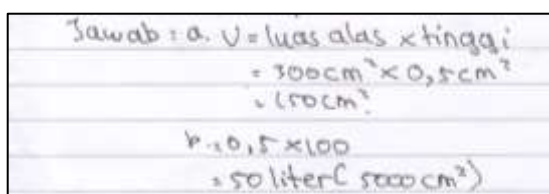 Jawab : a. V = luas alas x tinggi
= 300 cm² x 0,5 cm²
= 150 cm²
b. = 0,5 x 100
= 50 liter ( 5000 cm²)